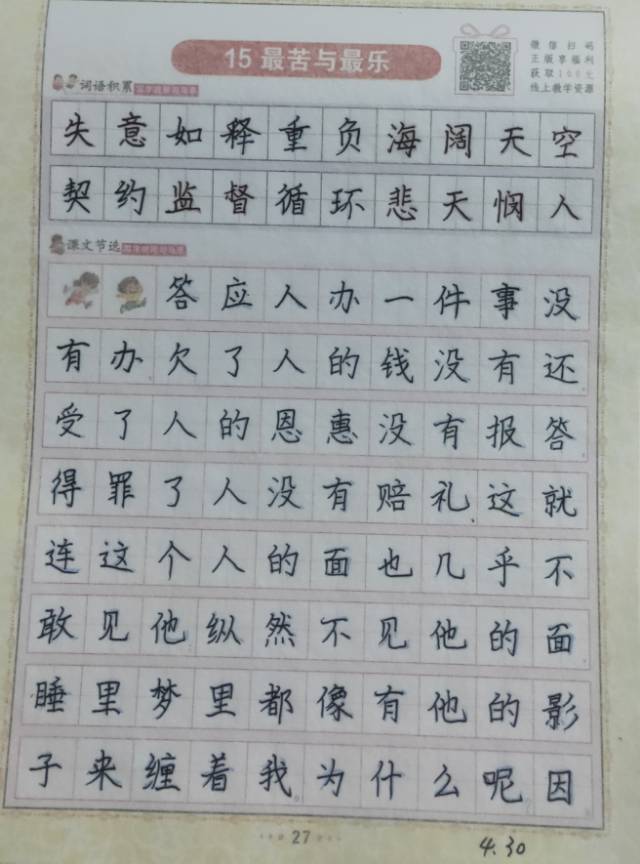 15 最苦与最乐
微信扫码
正版享福利
获取100元
线上教学资源
词语积累
失意如释重负海阔天空
契约监督循环悲天悯人
课文节选
答应人办一件事没
有办欠了人的钱没有还
受了人的恩惠没有报答
得罪了人没有赔礼这就
连这个人的面也几乎不
敢见他纵然不见他的面
睡里梦里都像有他的影
子来缠着我为什么呢因
27
4.30